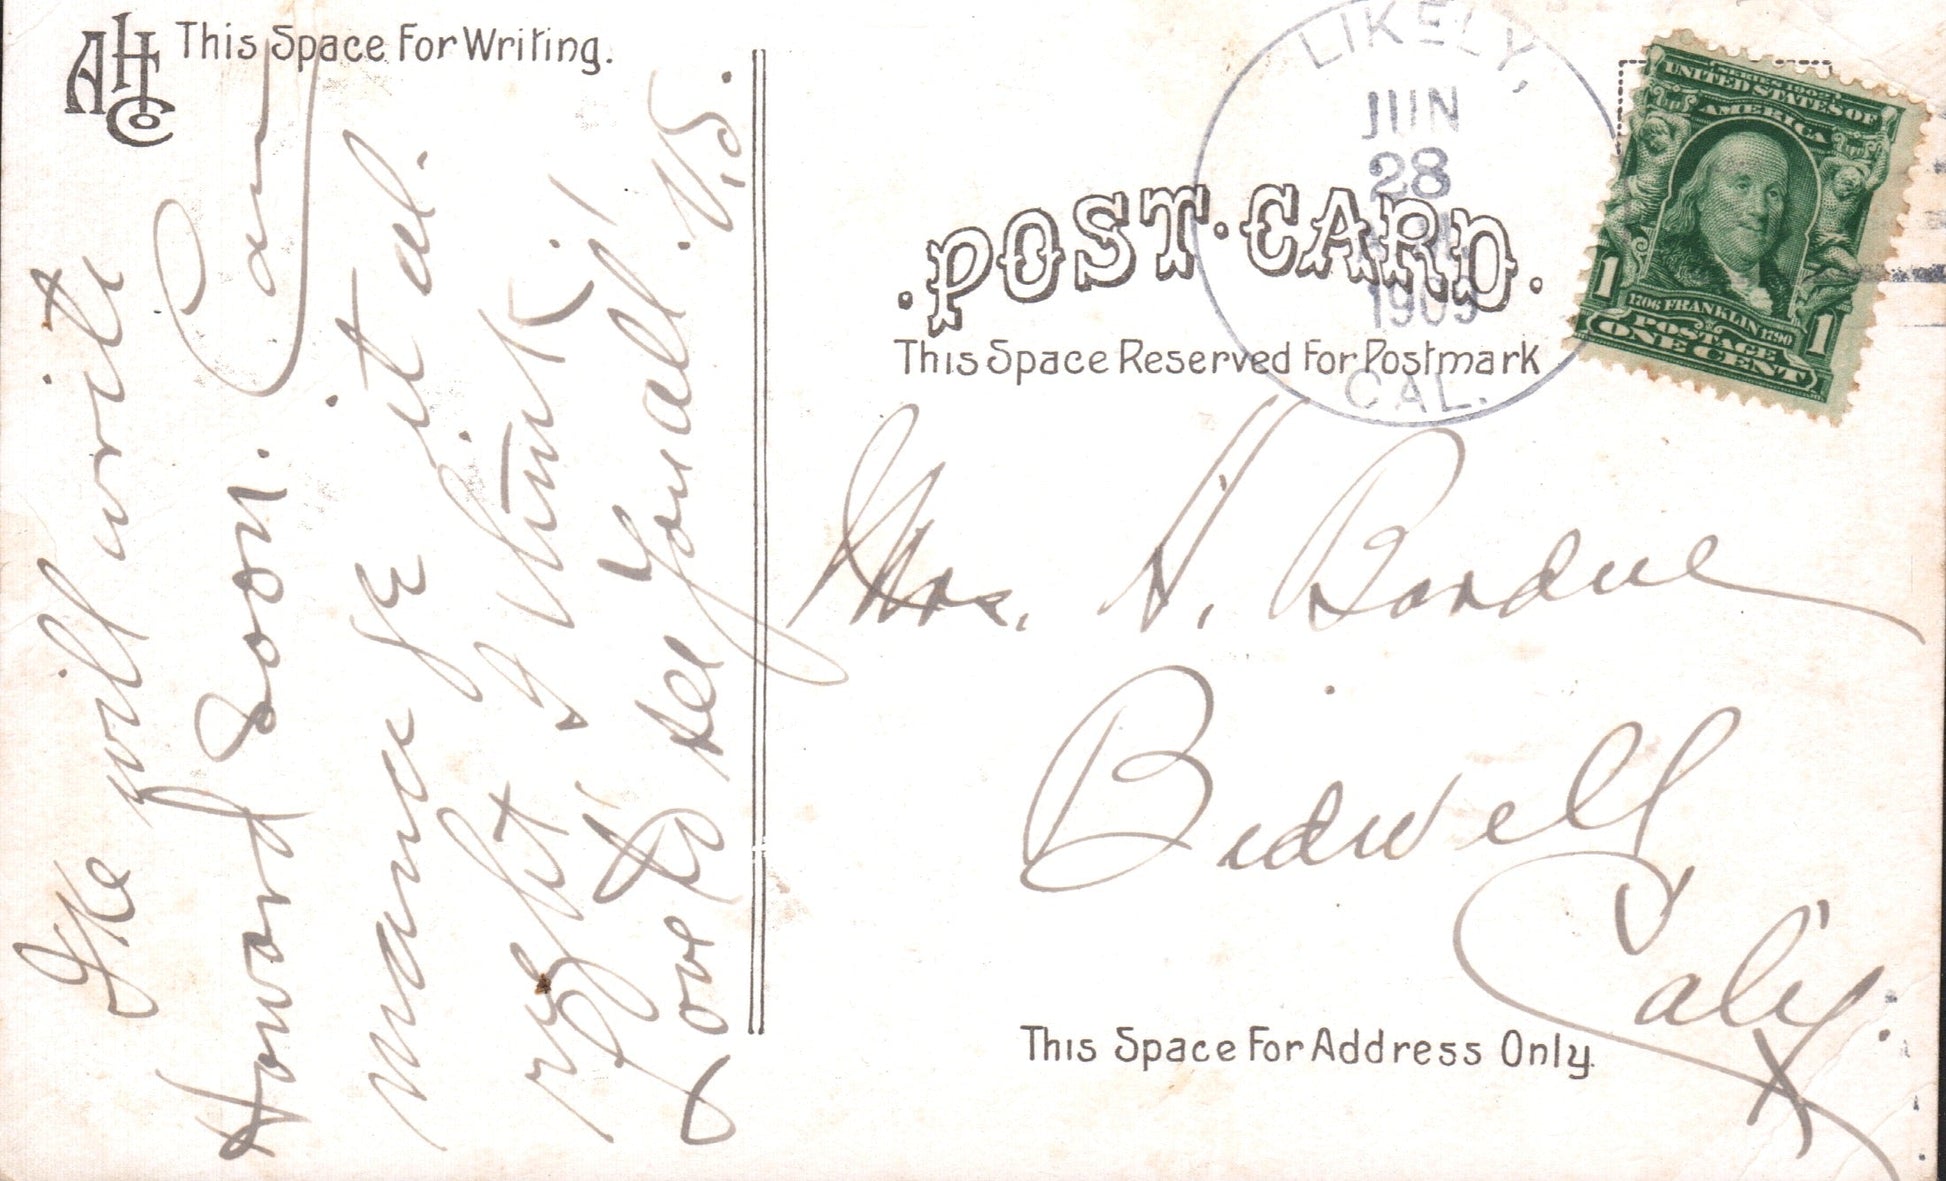 AHCo
This Space For Writing.
will write
Howard soon. Can
it al.
right I think!
Love to All You all. V.S.
POST CARD.
This Space Reserved For Postmark
LIKELY,
JUN
28
1909
CAL.
SERIES 1902
UNITED STATES OF
AMERICA
1706 FRANKLIN 1790
POSTAGE
1 ONE CENT 1
Mrs. H. Bordue
Bidwell
Calif.
This Space For Address Only.